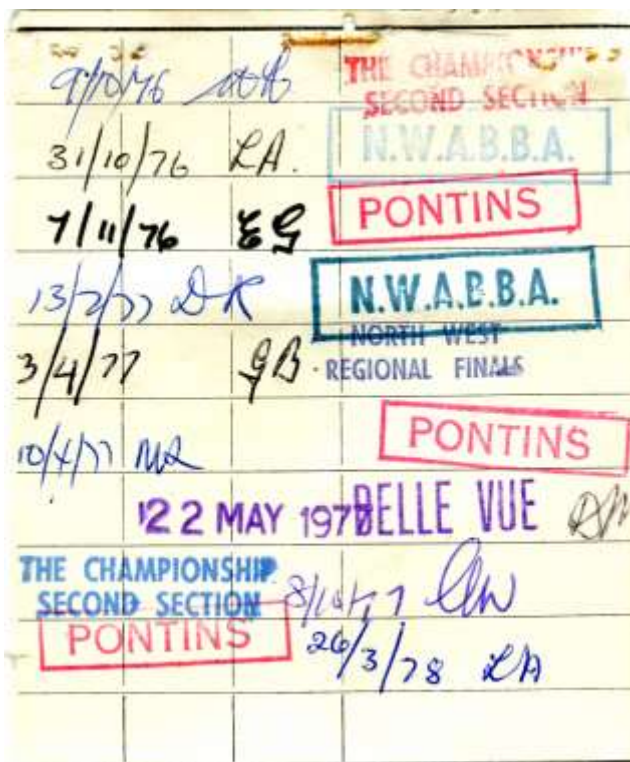 9/10/76 THE CHAMPIONSHIP
SECOND SECTION
31/10/76 LA. N.W.A.B.B.A.
7/11/76 EG PONTINS
13/2/77 DK N.W.A.B.B.A.
NORTH WEST
3/4/77 GB REGIONAL FINALS
10/4/77 PONTINS
22 MAY 1977 BELLE VUE
THE CHAMPIONSHIP
SECOND SECTION 8/10/77
PONTINS 26/3/78 LA